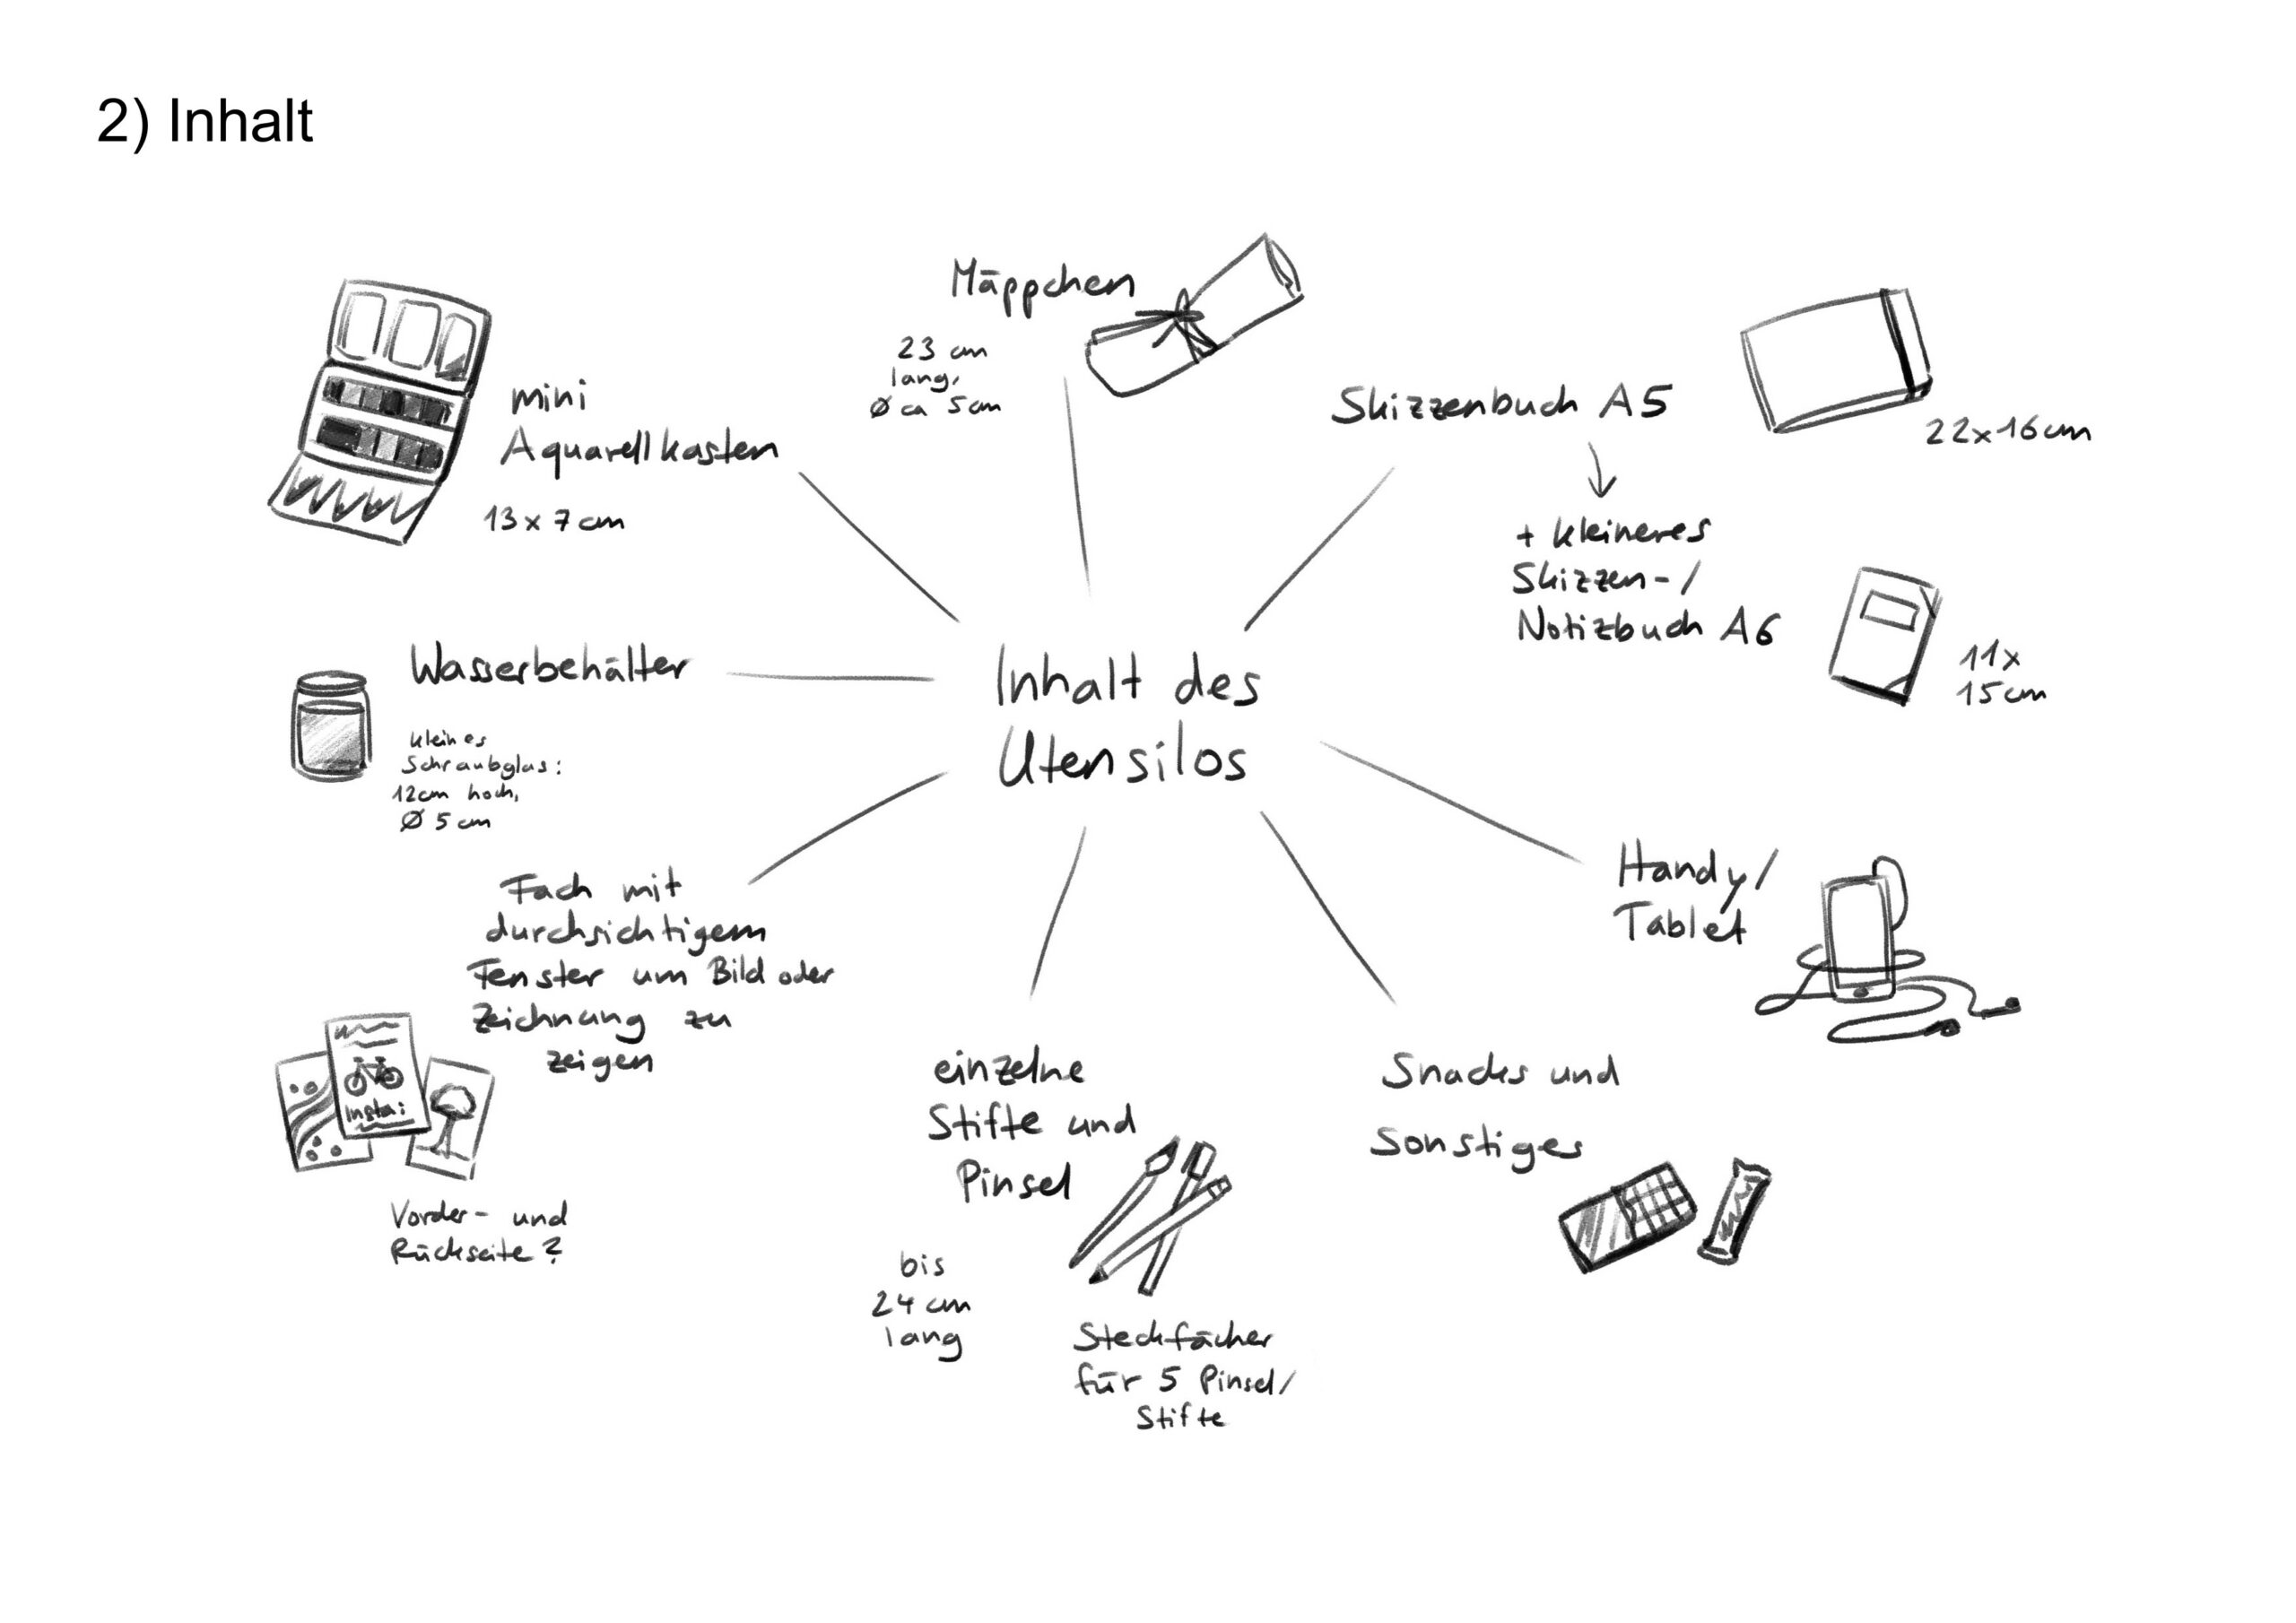 2) Inhalt
Mäppchen
23 cm
lang,
Ø ca 5cm
Skizzenbuch A5
22x16cm
+ kleineres
Skizzen-/
Notizbuch A6
11x
15cm
mini
Aquarellkasten
13x7cm
Wasserbehälter
kleines
Schraubglas:
12cm hoch,
Ø 5cm
Inhalt des
Utensilos
Handy/
Tablet
Fach mit
durchsichtigem
Fenster um Bild oder
Zeichnung zu
zeigen
Insta:
Vorder- und
Rückseite?
einzelne
Stifte und
Pinsel
bis
24cm
lang
Steckfächer
für 5 Pinsel/
Stifte
Snacks und
Sonstiges